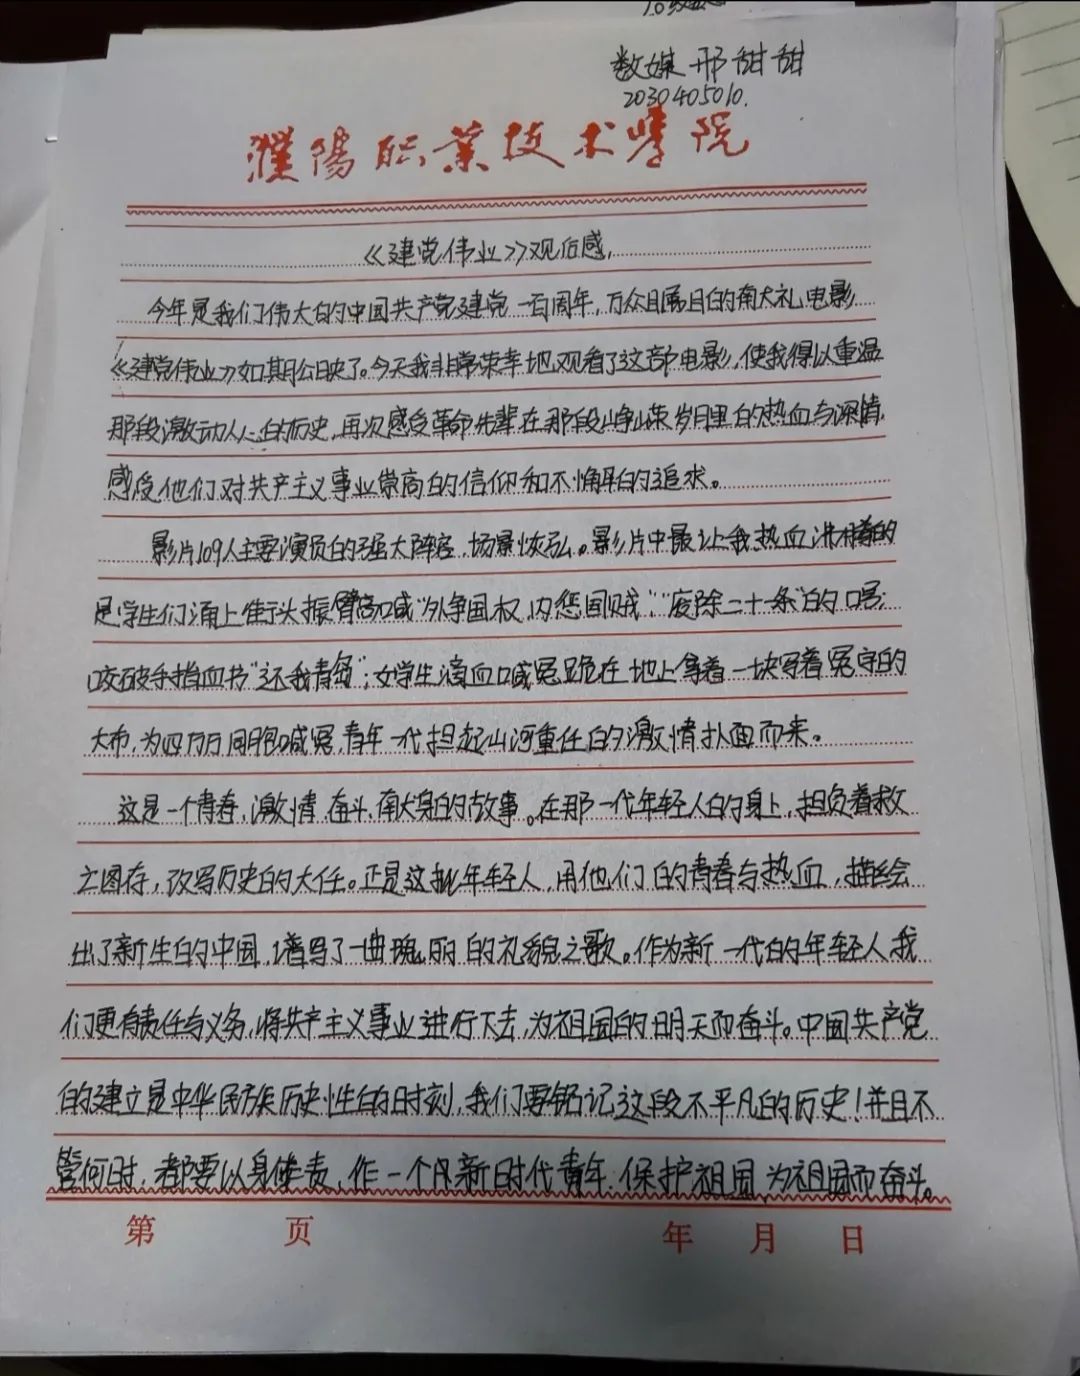 数媒 邢甜甜
2030405010.
濮陽职業技术学院
《建党伟业》观后感,
今年是我们伟大的中国共产党建党一百周年,万众瞩目的献礼电影
《建党伟业》如期公映了。今天我非常荣幸地观看了这部电影,使我得以重温
那段激动人心的历史,再次感受革命先辈在那段峥嵘岁月里的热血与深情,
感受他们对共产主义事业崇高的信仰和不懈的追求。
影片109人主要演员的强大阵容,场景恢弘。影片中最让我热血沸腾的
是学生们涌上街头振臂高喊“外争国权,内惩国贼”“废除二十一条”的口号;
咬破手指血书“还我青岛”;女学生滴血喊冤跪在地上拿着一块写着冤字的
大布,为四万万同胞喊冤,青年一代担起山河重任的激情扑面而来。
这是一个青春,激情,奋斗,献身的故事。在那一代年轻人的身上,担负着救
亡图存,改写历史的大任。正是这批年轻人,用他们的青春与热血,描绘
出了新生的中国,谱写了一曲瑰丽的礼貌之歌。作为新一代的年轻人我
们更有责任与义务,将共产主义事业进行下去,为祖国的明天而奋斗。中国共产党
的建立是中华民族历史性的时刻,我们要铭记这段不平凡的历史!并且不
管何时,都要以身作责,作一个新时代青年,保护祖国,为祖国而奋斗。
第 页 年 月 日